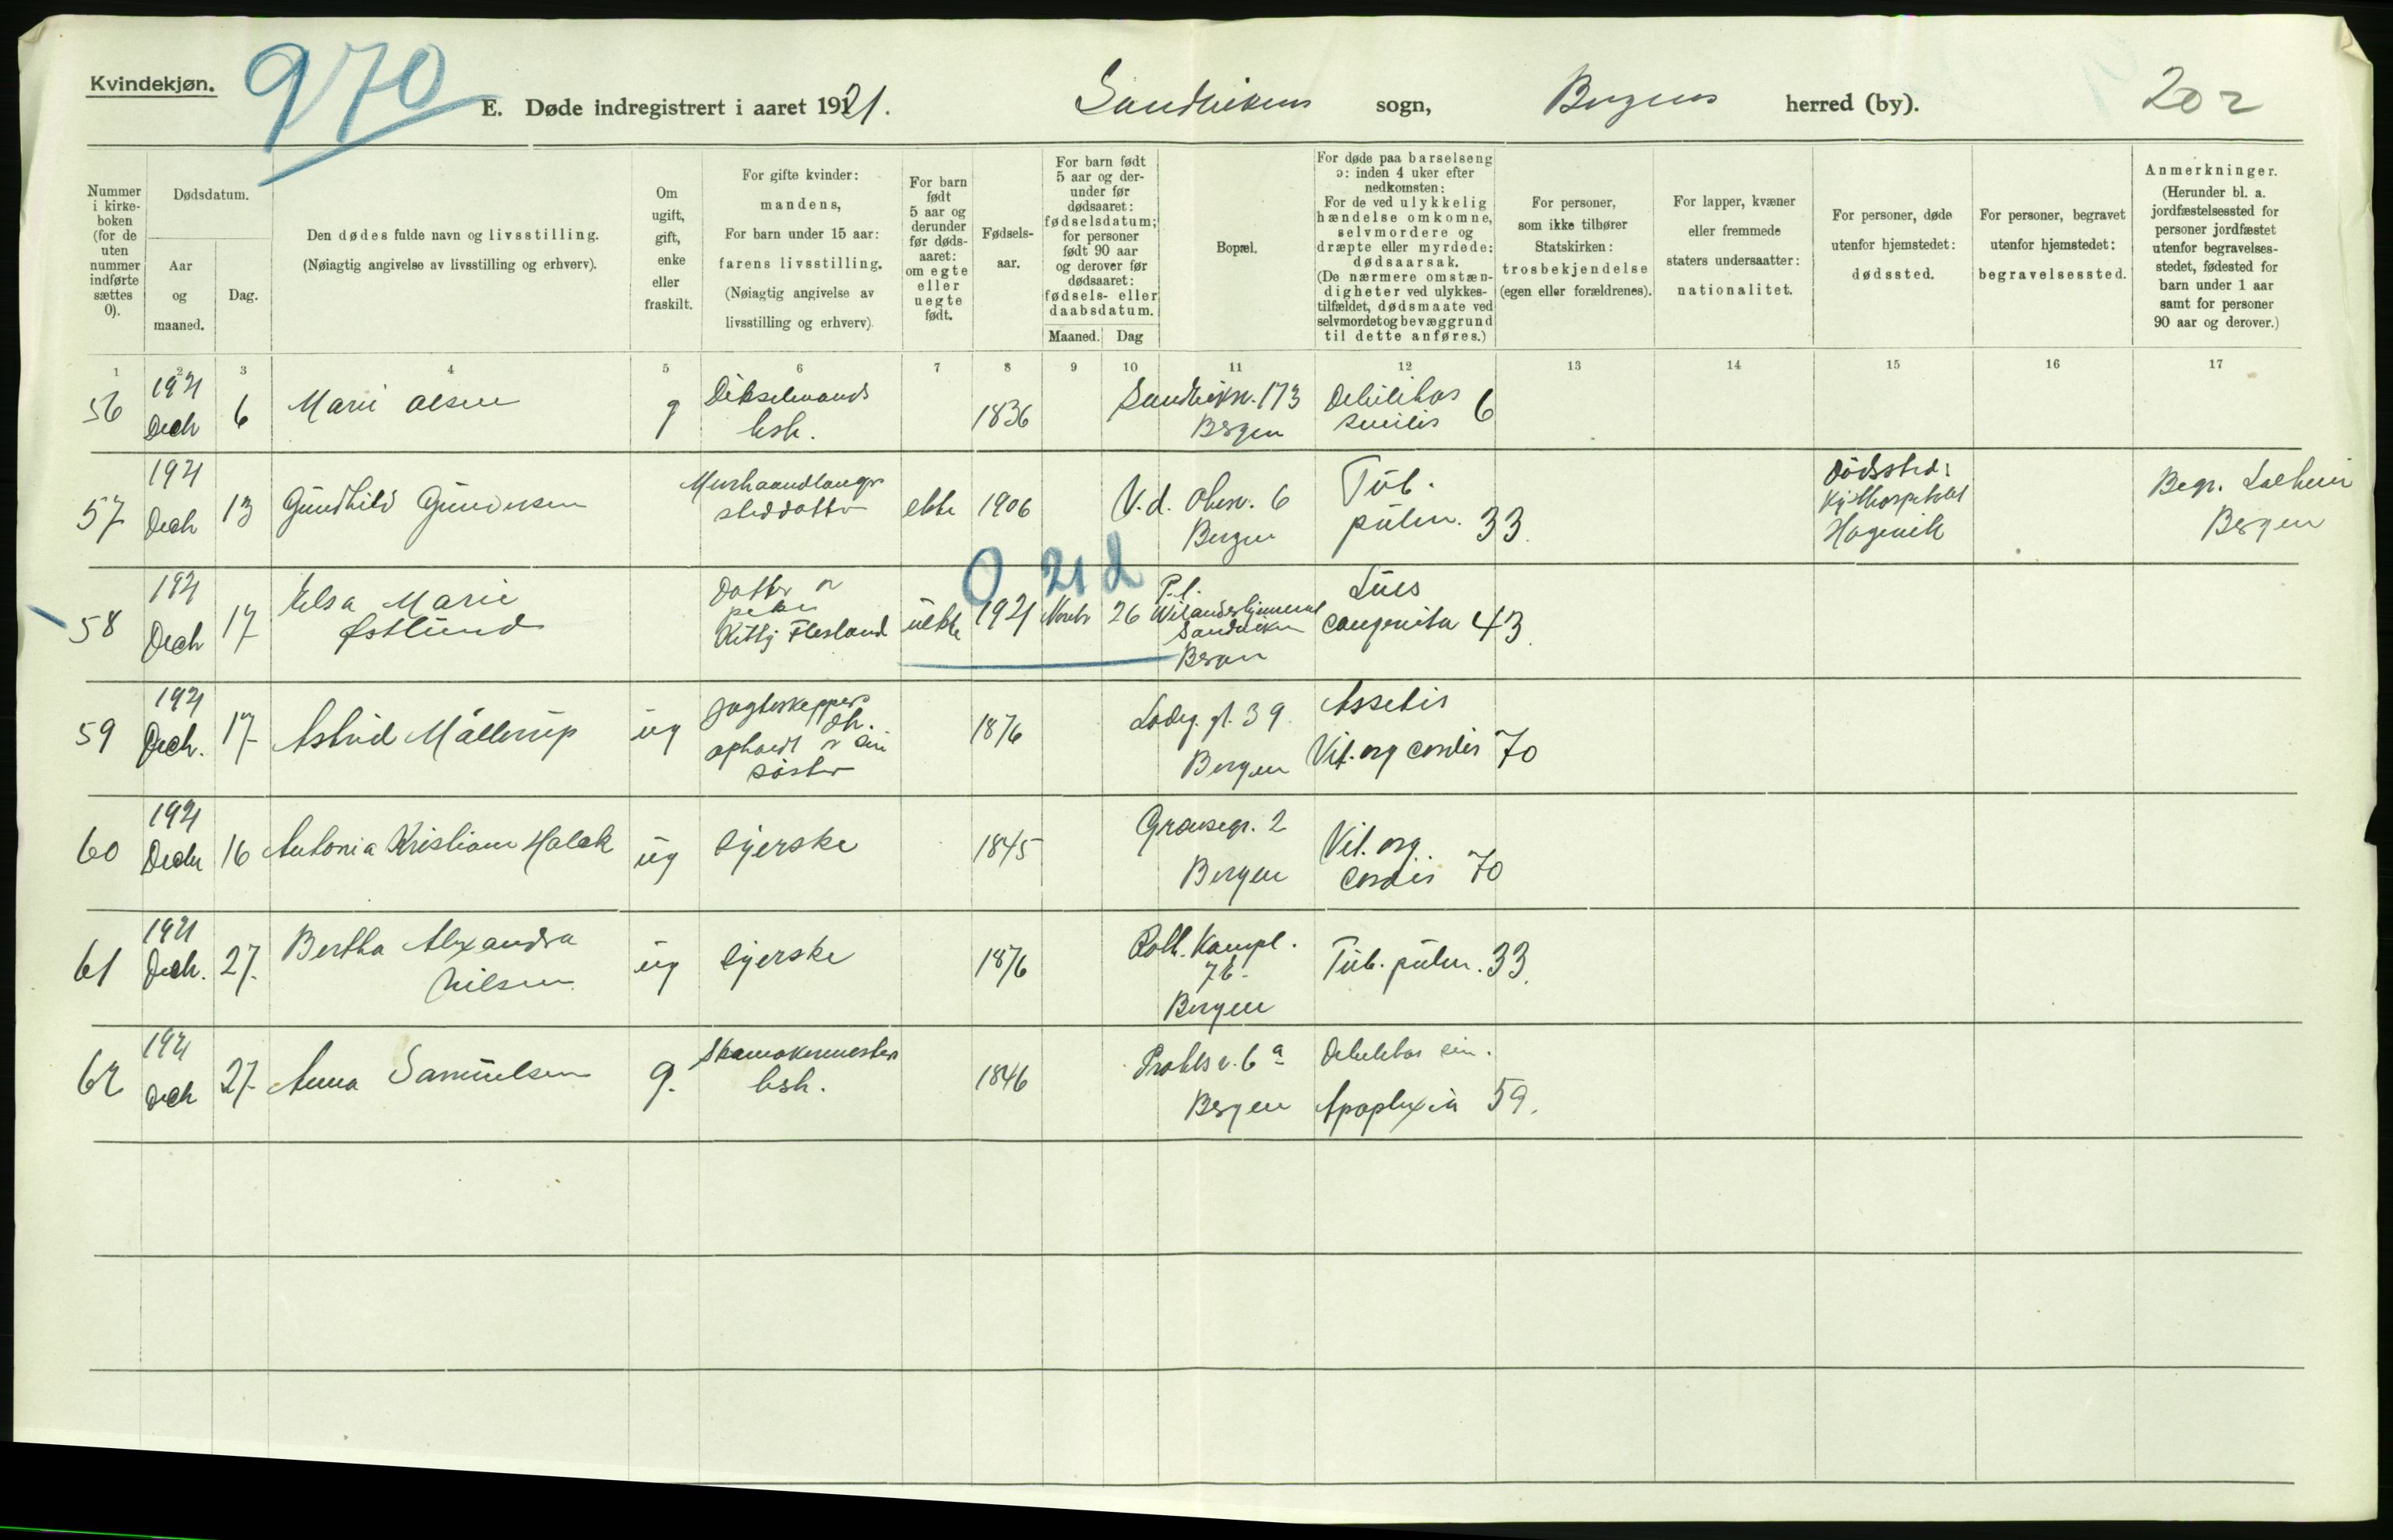 Kvindekjøn.
970
E. Døde indregistrert i aaret 1921.
Sandvikens sogn,
Bergens herred (by).
202
Nummer i kirke-boken (for de uten nummer indførte sættes 0).
Dødsdatum.
Aar og maaned.
Dag.
Den dødes fulde navn og livsstilling.
(Nøiagtig angivelse av livsstilling og erhverv).
Om ugift, gift, enke eller fraskilt.
For gifte kvinder:
mandens,
For barn under 15 aar:
farens livsstilling.
(Nøiagtig angivelse av
livsstilling og erhverv)
For barn født 5 aar og derunder før døds-aaret: om egte eller uegte født.
Fødsels-aar.
For barn født 5 aar og der-under før dødsaaret: fødselsdatum; for personer født 90 aar og derover før dødsaaret: fødsels- eller daabsdatum.
Maaned.
Dag
Bopæl.
For døde paa barselseng
ɔ: inden 4 uker efter
nedkomsten:
For de ved ulykkelig
hændelse omkomne,
selvmordere og
dræpte eller myrdede:
dødsaarsak.
(De nærmere omstæn-
digheter ved ulykkes-
tilfældet, dødsmaate ved
selvmordet og bevæggrund
til dette anføres.)
For personer,
som ikke tilhører
Statskirken:
trosbekjendelse
(egen eller forældrenes).
For lapper, kvæner
eller fremmede
staters undersaatter:
nationalitet.
For personer, døde
utenfor hjemstedet:
dødssted.
For personer, begravet
utenfor hjemstedet:
begravelsessted.
Anmerkninger.
(Herunder bl. a.
jordfæstelsessted for
personer jordfæstet
utenfor begravelses-
stedet, fødested for
barn under 1 aar
samt for personer
90 aar og derover.)
1 2 3 4 5 6 7 8 9 10 11 12 13 14 15 16 17
56 1921 Decb 6 Marie Olsen g Dikselmands hsh. 1836 Sandviksv. 173 Bergen Debilitas senilis 6
57 1921 Decb 13 Gundhild Gundersen Murhaandlangers steddatter ekte 1906 V.d. 6 Bergen Tub. pulm. 33. Dödssted: Kysthospitalet Hagevik Begr. Solheim Bergen
0 21 d
58 1921 Decb 17 Elsa Marie Østlund Datter av pike Kitty Flesland uekte 1921 Novbr 26 P.t. Sandviken Bergen Lues congenita 43.
59 1921 Decb. 17 Astrid Möllerup ug Jagteskippers dtr. ophold v sin söster 1876 Ladeg. gt. 39. Bergen Assitis Vit. org cordis 70
60 1921 Decbr 16 Antonia Kristiane Holck ug Syerske 1845 Græsgr. 2 Bergen Vit. org. cordis 70
61 1921 Decb. 27. Bertha Alexandra Nilsen ug Syerske 1876 Roth. Kampl. 7b. Bergen Tub. pulm. 33.
62 1921 Decb 27. Anna Samuelsen g. Skomakermesters hsh. 1846 Prahls v. 6a Bergen Debilitas sen. Apoplexia 59.